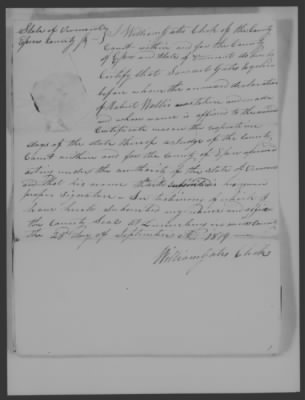 State of Vermont
Essex County ss
I William Gates Clerk of the County
Court within and for the County
of Essex and State of Vermont do hereby
Certify that Samuel Gates
before whom the annexed declaration
of Robert was taken and made
and whose name is affixed to the
Certificate was on the respective
days of the date thereof a Judge of the County
Court within and for the county of Essex aforesaid
acting under the authority of the State of Vermont
and that his name subscribed is his own
proper signature In testimony of which I
have hereto Subscribed my name and affixed
the County Seal at
the 28th day of September AD 1819
William Gates Clerk